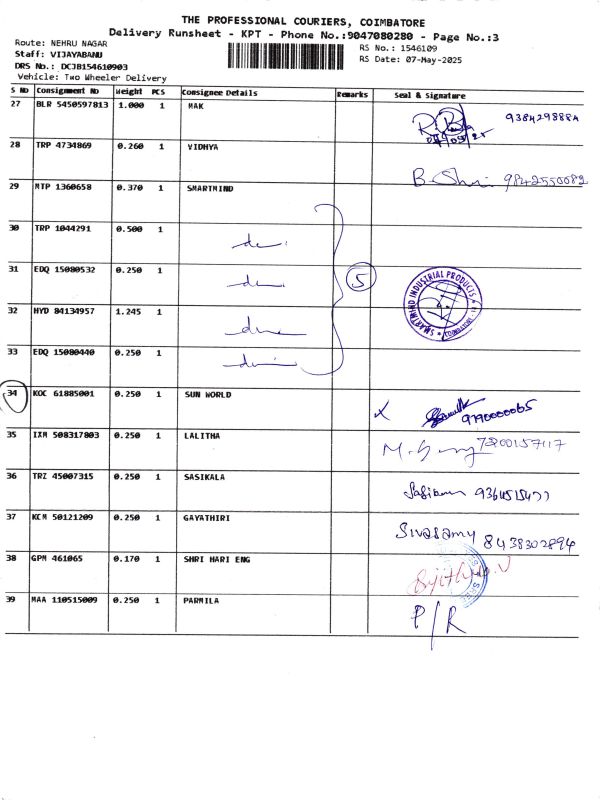 THE PROFESSIONAL COURIERS, COIMBATORE
Delivery Runsheet - KPT - Phone No.:9047080280 - Page No.:3
Route: NEHRU NAGAR
Staff: VIJAYABANU
DRS No.: DCJB154610903
Vehicle: Two Wheeler Delivery
RS No.: 1546109
RS Date: 07-May-2025
S No Consignment No Weight PCS Consignee Details Remarks Seal & Signature
27 BLR 5450597813 1.000 1 MAK
28 TRP 4734869 0.260 1 VIDHYA
29 MTP 1360658 0.370 1 SMARTMIND 9842550082
30 TRP 1044291 0.500 1
31 EDQ 15080532 0.250 1 5 SMARTMIND INDUSTRIAL PRODUCTS
32 HYD 84134957 1.245 1
33 EDQ 15080440 0.250 1
34 KOC 61885001 0.250 1 SUN WORLD 9790000065
35 IXM 508317803 0.250 1 LALITHA
36 TRZ 45007315 0.250 1 SASIKALA
37 KCM 50121209 0.250 1 GAYATHIRI Sivasamy 8438302894
38 GPM 461065 0.170 1 SHRI HARI ENG
39 MAA 110515009 0.250 1 PARMILA P/R